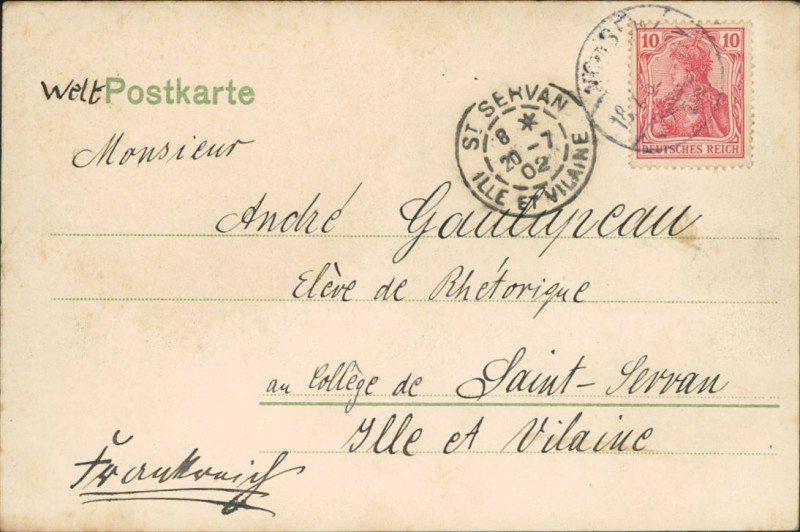 Welt Postkarte
Monsieur
André
Elève de Rhétorique
au Collège de Saint-Servan
Ille et Vilaine
Frankreich
ST SERVAN
8 * 20 -7 02
ILLE ET VILAINE
10 10
DEUTSCHES REICH